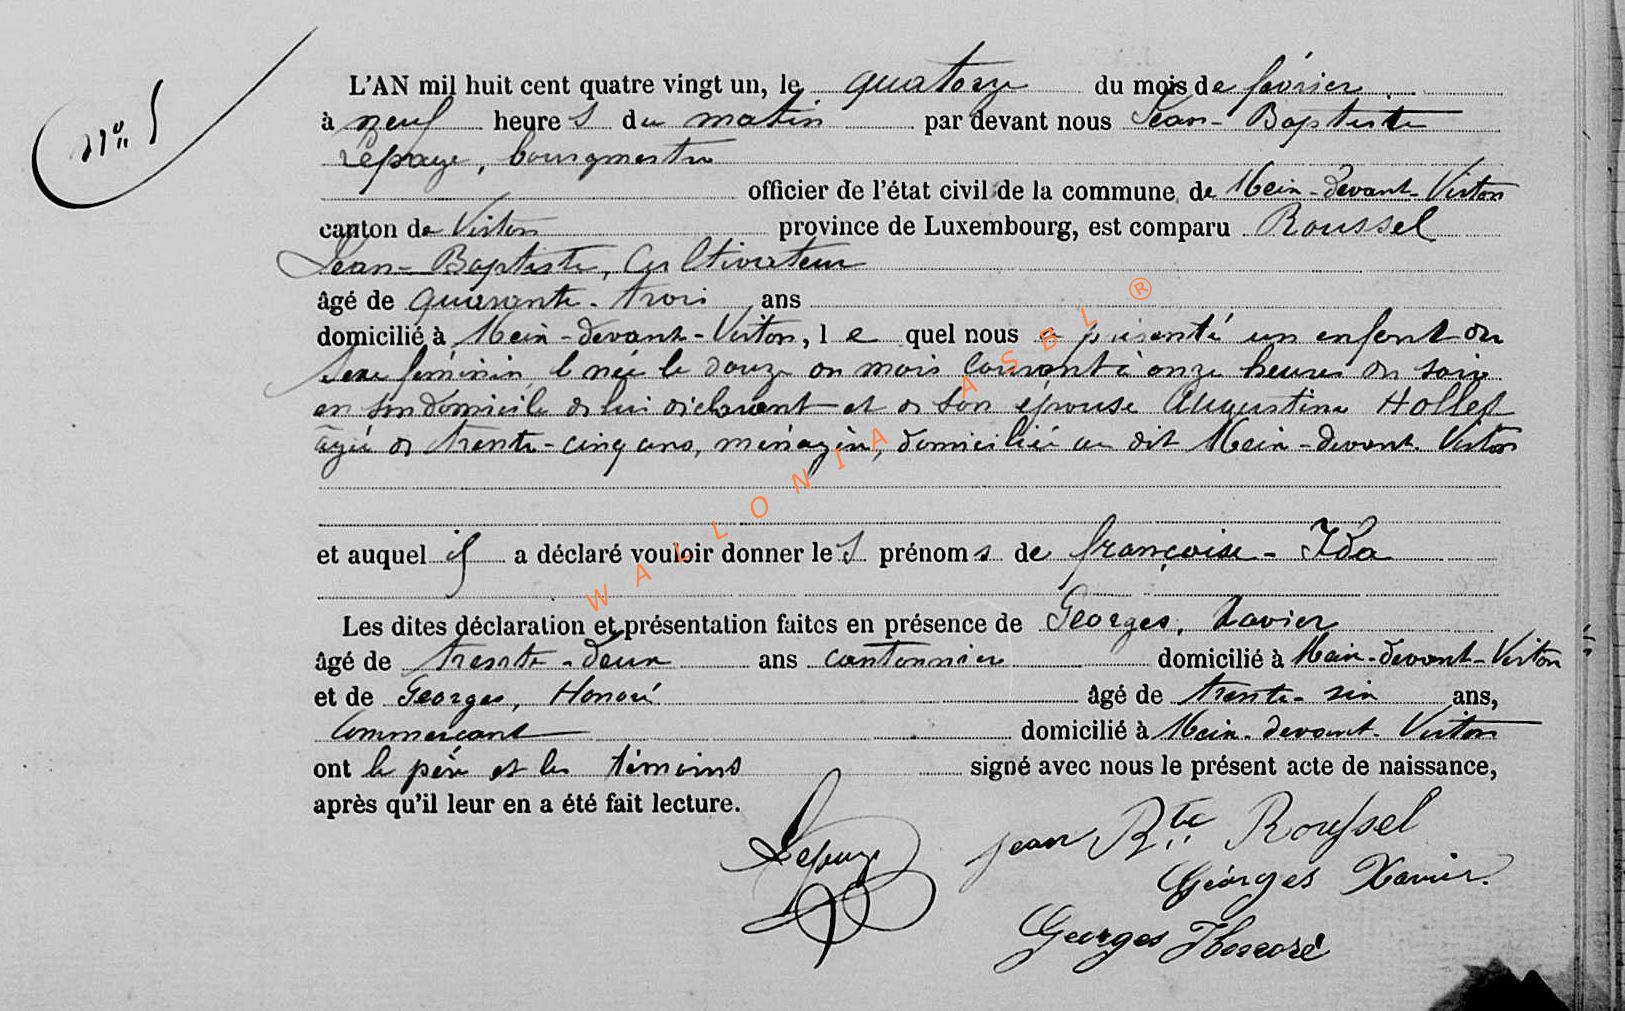 N° 5
L'AN mil huit cent quatre vingt un, le quatorze du mois de février
à neuf heures du matin par devant nous Jean-Baptiste
Lepage, bourgmestre
officier de l'état civil de la commune de Meix-devant-Virton
canton de Virton province de Luxembourg, est comparu Roussel
Jean-Baptiste, Cultivateur
âgé de quarante-trois ans
domicilié à Meix-devant-Virton, lequel nous a présenté un enfant du
Sexe féminin, né le douze du mois courant à onze heures du soir
en son domicile de lui déclarant et de son épouse Augustine Hollet
âgée de trente-cinq ans, ménagère, domiciliée au dit Meix-devant-Virton
et auquel il a déclaré vouloir donner les prénoms de françoise-Ida
Les dites déclaration et présentation faites en présence de Georges, Xavier
âgé de trente-deux ans cantonnier domicilié à Meix-devant-Virton
et de Georges, Honoré âgé de trente-six ans,
Commerçant domicilié à Meix-devant-Virton
ont le père et les témoins signé avec nous le présent acte de naissance,
après qu'il leur en a été fait lecture.
Lepage jean Bte Roussel
Géorges Xavier.
Georges Honoré
WALLONIA ASBL ®